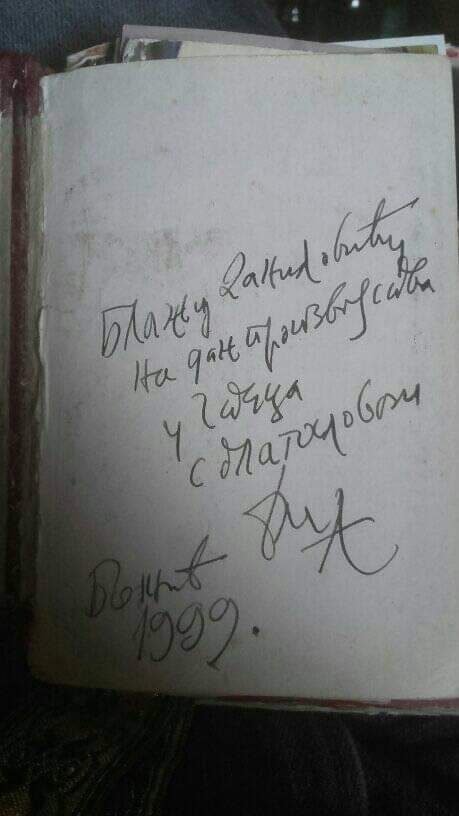 Блажу Даниловићу
на дан произвођства
у
с благословом
Божић
1999.